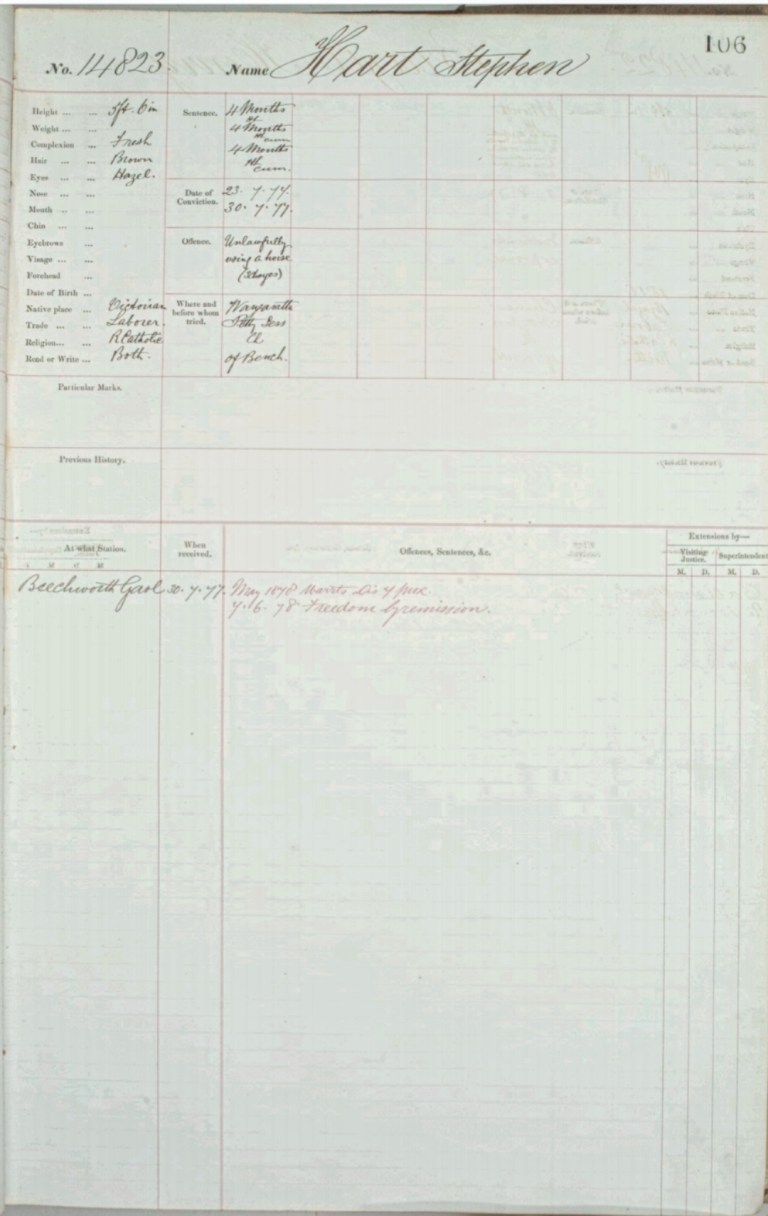 106
No. 14823. Name Hart Stephen
Height ... ... 5ft. 6in
Weight ... ...
Complexion ... Fresh
Hair ... ... Brown
Eyes ... ... Hazel.
Nose ... ...
Mouth ... ...
Chin ... ...
Eyebrows ...
Visage ... ...
Forehead ...
Date of Birth ...
Native place ... Victorian
Trade ... ... Laborer.
Religion... ... R Catholic
Read or Write ... Both.
Sentence. 4 Months
4 Months
cum
4 Months
cum.
Date of Conviction. 23. 7. 77.
30. 7. 77.
Offence. Unlawfully
using a horse
Where and before whom tried. Wangaratta
Petty Sess
of Bench.
Particular Marks.
Previous History.
At what Station. When received. Offences, Sentences, &c. Extensions by—
Visiting Justice. Superintendent
M. D. M. D.
Beechworth Gaol 30. 7. 77. May 1878
7. 6. 78 Freedom by remission.